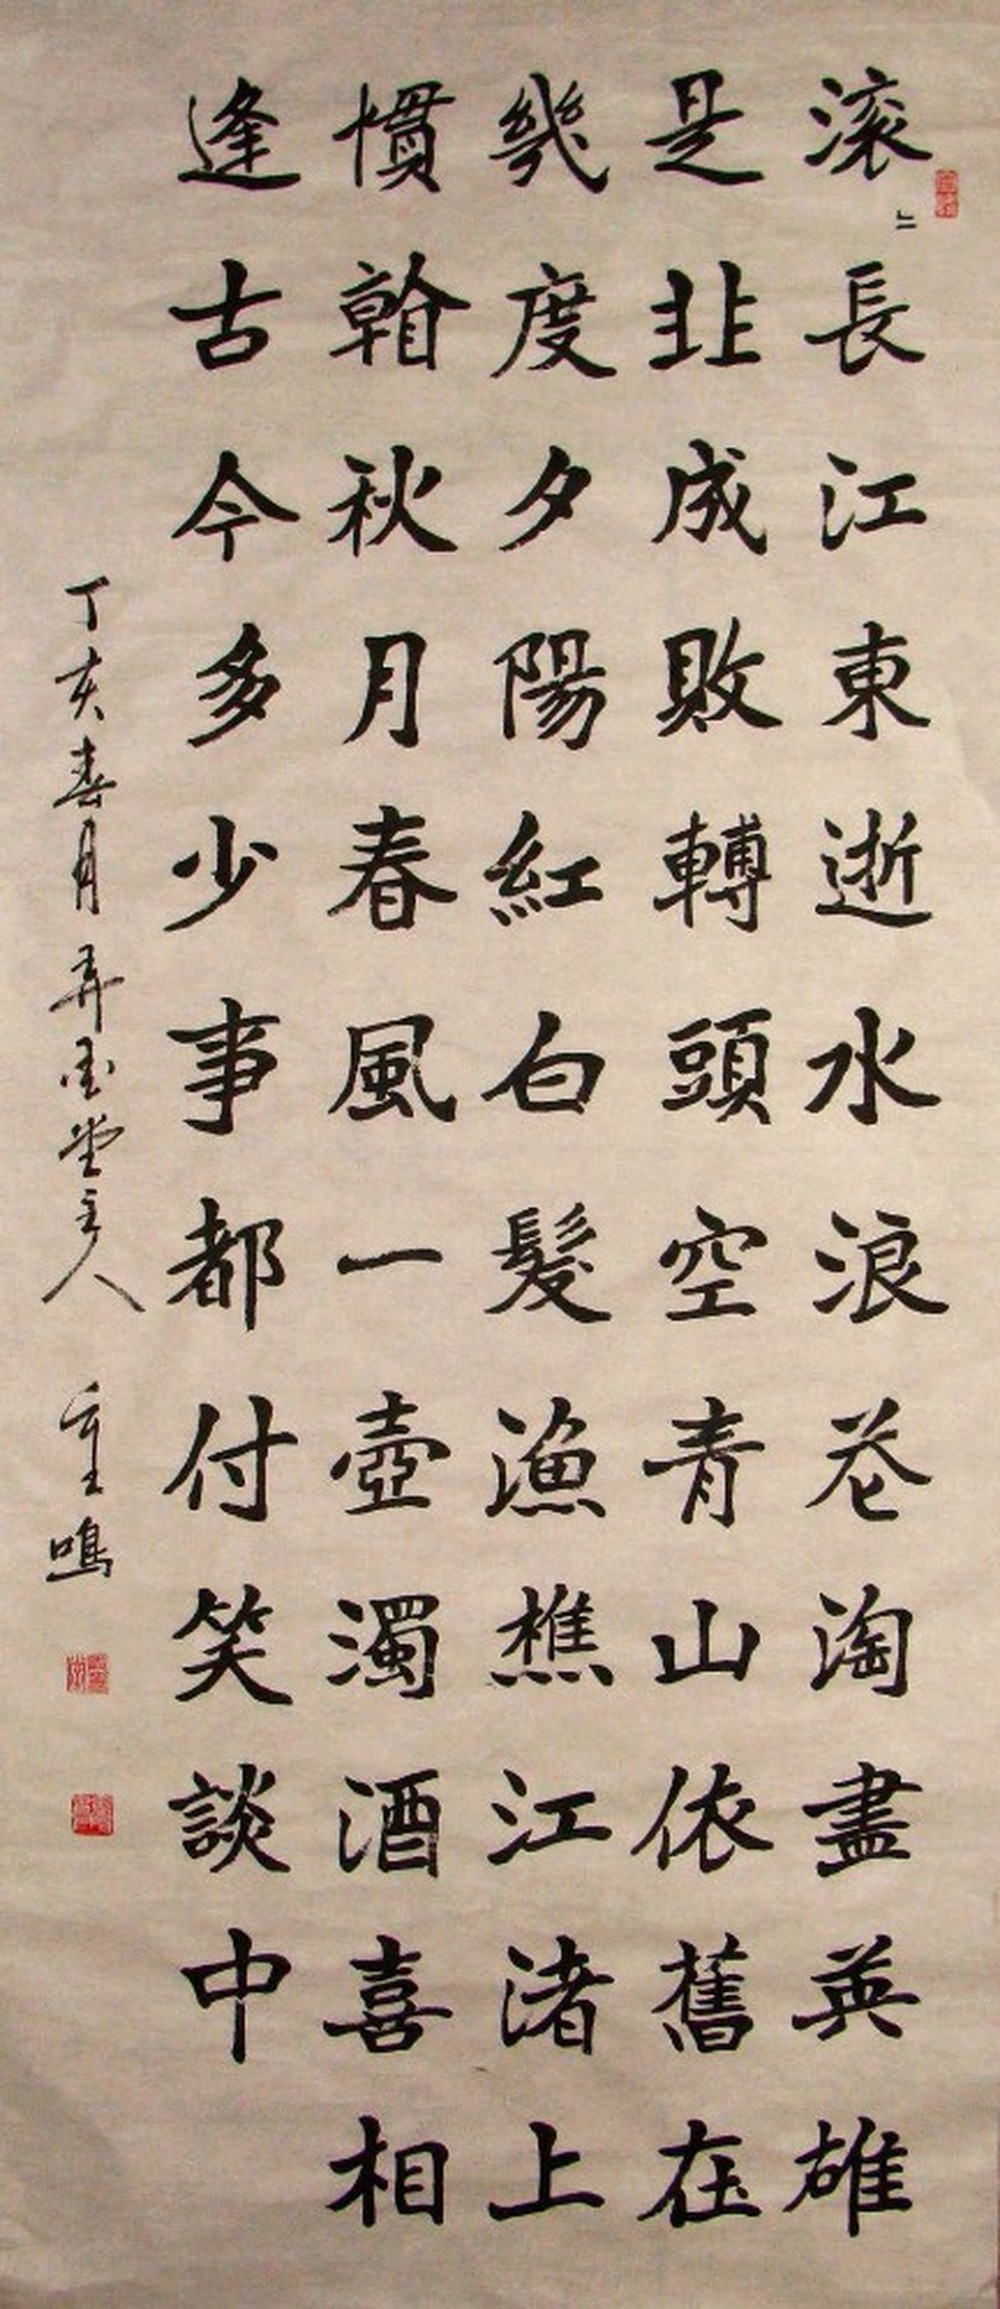 滾〻長江東逝水浪花淘盡英雄
是非成敗轉頭空青山依舊在
幾度夕陽紅白髮漁樵江渚上
慣看秋月春風一壺濁酒喜相
逢古今多少事都付笑談中
丁亥春月弄墨堂主人 重鳴